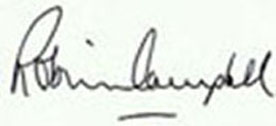 Robin Campbell